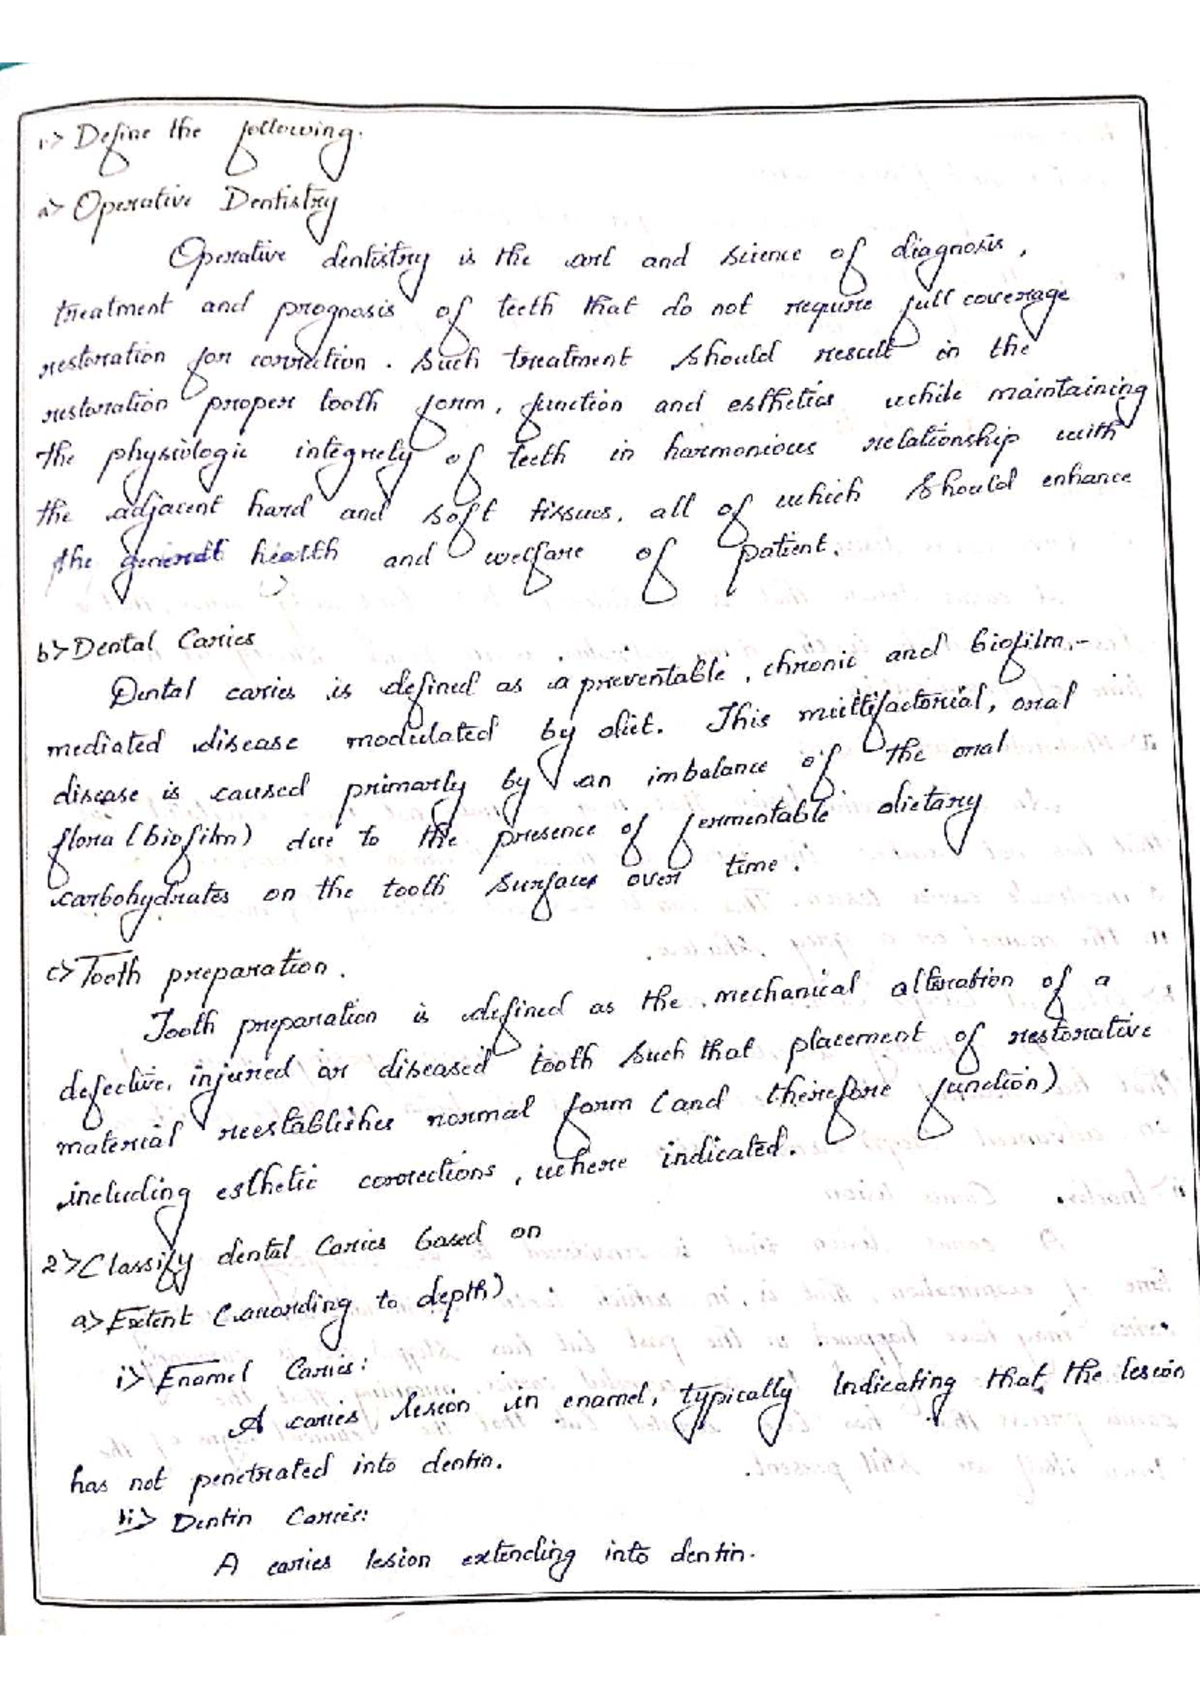 1.> Define the following.
a> Operative Dentistry
Operative dentistry is the art and science of diagnosis,
treatment and prognosis of teeth that do not require full coverage
restoration for correction. Such treatment should result in the
restoration proper tooth form, function and esthetics while maintaining
the physiologic integrety of teeth in harmonious relationship with
the adjacent hard and soft tissues, all of which should enhance
the general health and welfare of patient.
b> Dental Caries
Dental caries is defined as a preventable, chronic and biofilm-
mediated disease modulated by diet. This multifactorial, oral
disease is caused primarly by an imbalance of the oral
flora (biofilm) due to the presence of fermentable dietary
carbohydrates on the tooth surfaces over time.
c> Tooth preparation.
Tooth preparation is defined as the mechanical alteration of a
defective, injured or diseased tooth such that placement of restorative
material reestablishes normal form (and therefore function)
including esthetic corrections, where indicated.
2> Classify dental Caries based on
a> Extent (according to depth)
i> Enamel Caries:
A caries lesion in enamel, typically Indicating that the lesion
has not penetrated into dentin.
ii> Dentin Caries:
A caries lesion extending into dentin.